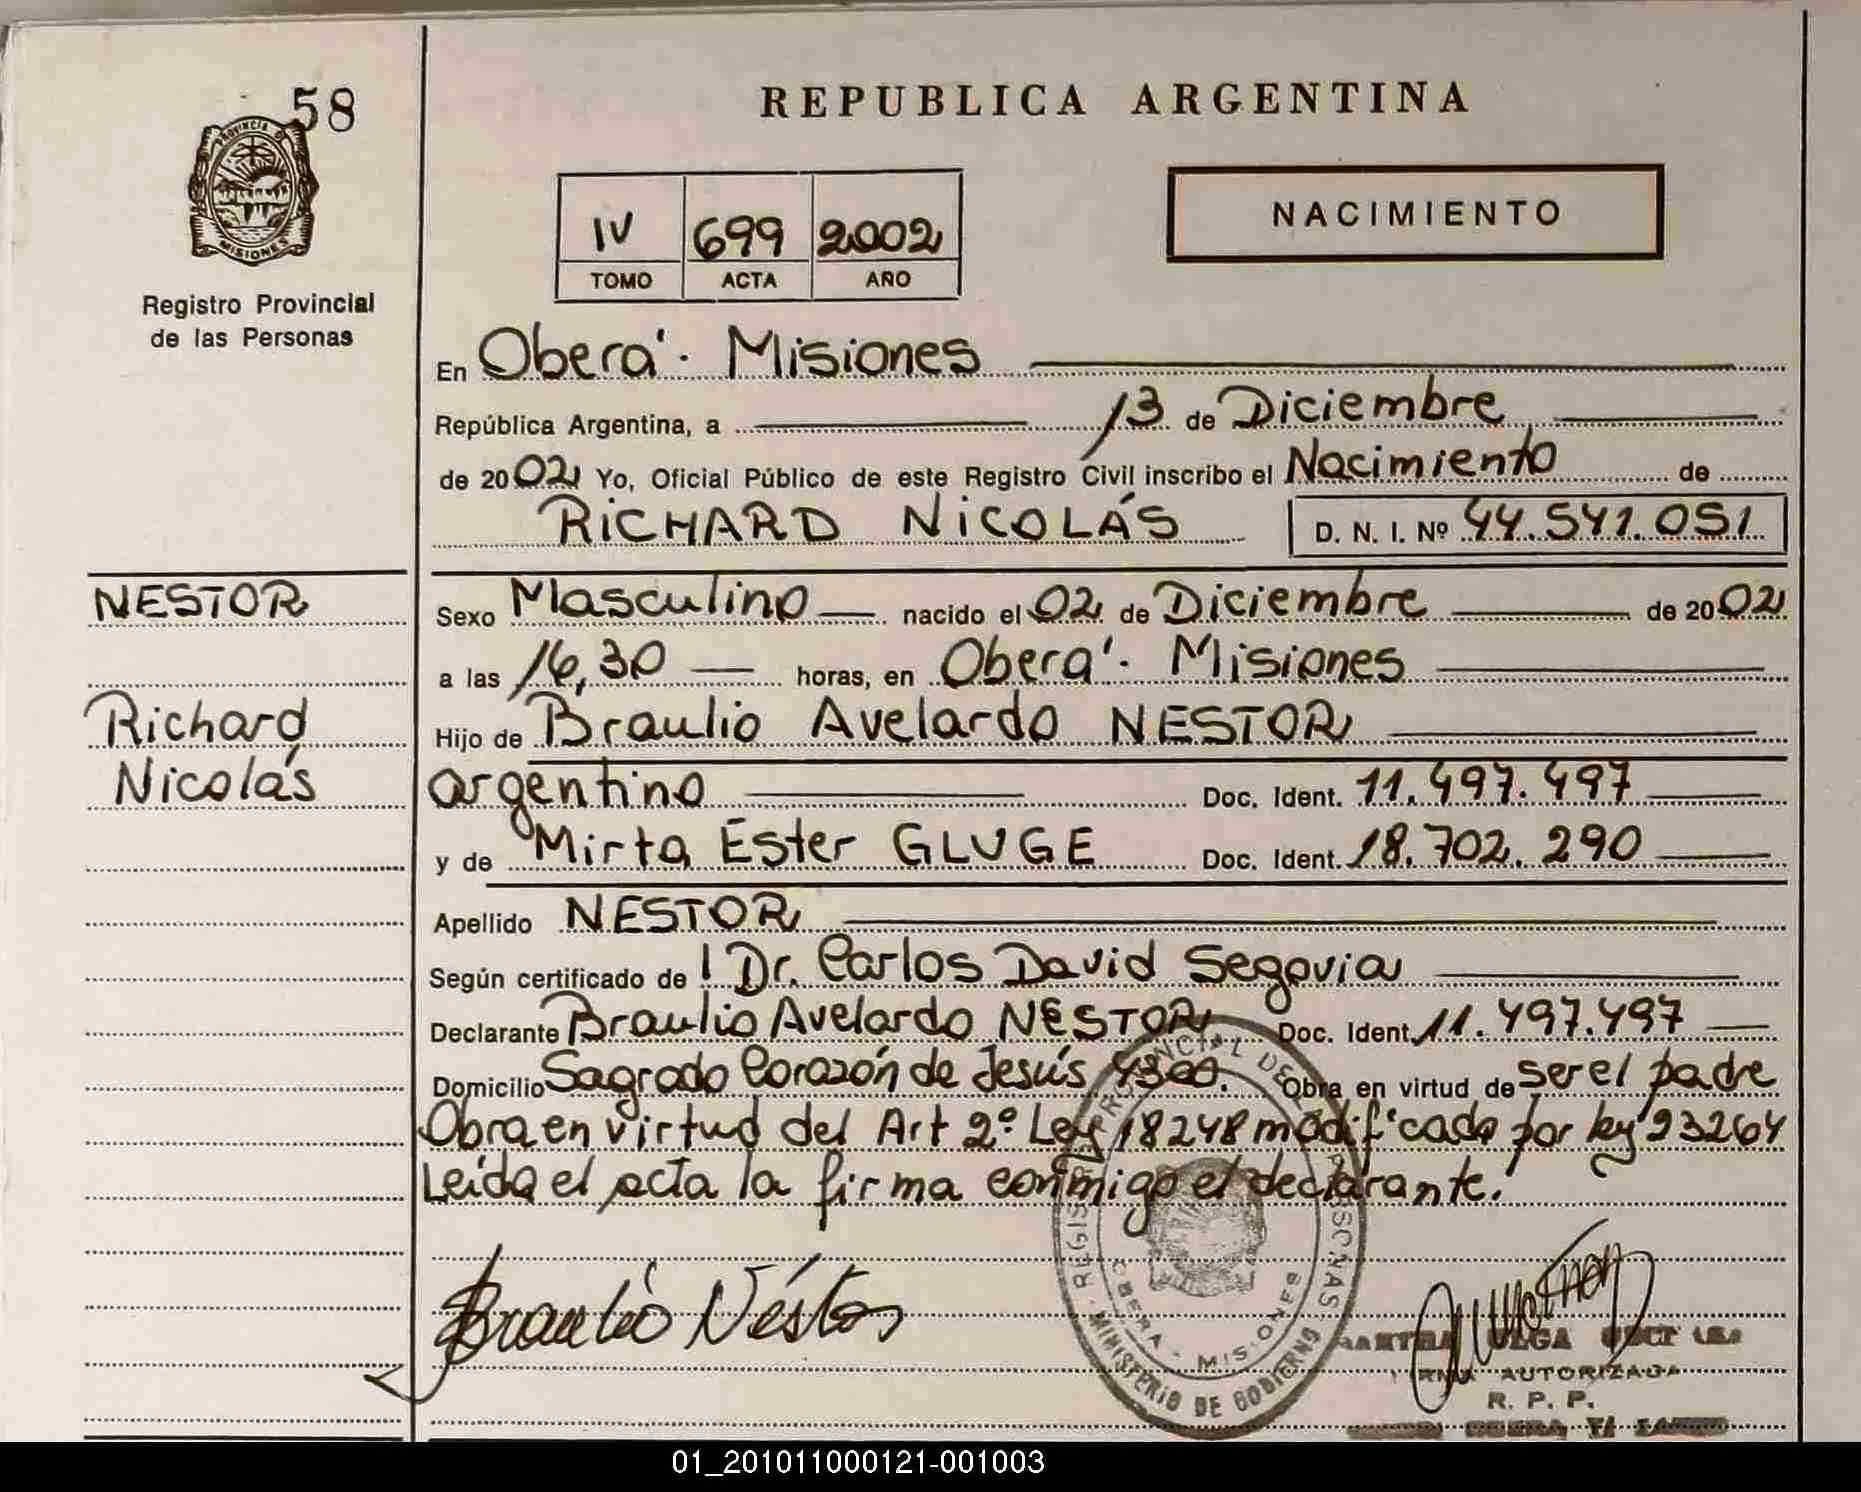 58
PROVINCIA DE
MISIONES
Registro Provincial
de las Personas
REPUBLICA ARGENTINA
IV 699 2002
TOMO ACTA AÑO
NACIMIENTO
En Oberá · Misiones
República Argentina, a 13 de Diciembre
de 2002 Yo, Oficial Público de este Registro Civil inscribo el Nacimiento de
RICHARD NICOLÁS D. N. I. Nº 44.541.051
NESTOR
Richard
Nicolás
Sexo Masculino nacido el 02 de Diciembre de 2002
a las 16,30 horas, en Oberá · Misiones
Hijo de Braulio Avelardo NESTOR
argentino Doc. Ident. 11.497.497
y de Mirta Ester GLUGE Doc. Ident. 18.702.290
Apellido NESTOR
Según certificado de l Dr. Carlos David Segovia
Declarante Braulio Avelardo NESTOR Doc. Ident. 11.497.497
Domicilio Sagrado Corazón de Jesús 4300. Obra en virtud de ser el padre
Obra en virtud del Art 2º Ley 18248 modificada por ley 23264
Leída el acta la firma conmigo el declarante.
Braulio Néstor
MINISTERIO DE GOBIERNO
OBERA - MISIONES
OLGA
AUTORIZADA
R. P. P.
OBERA
01_201011000121-001003